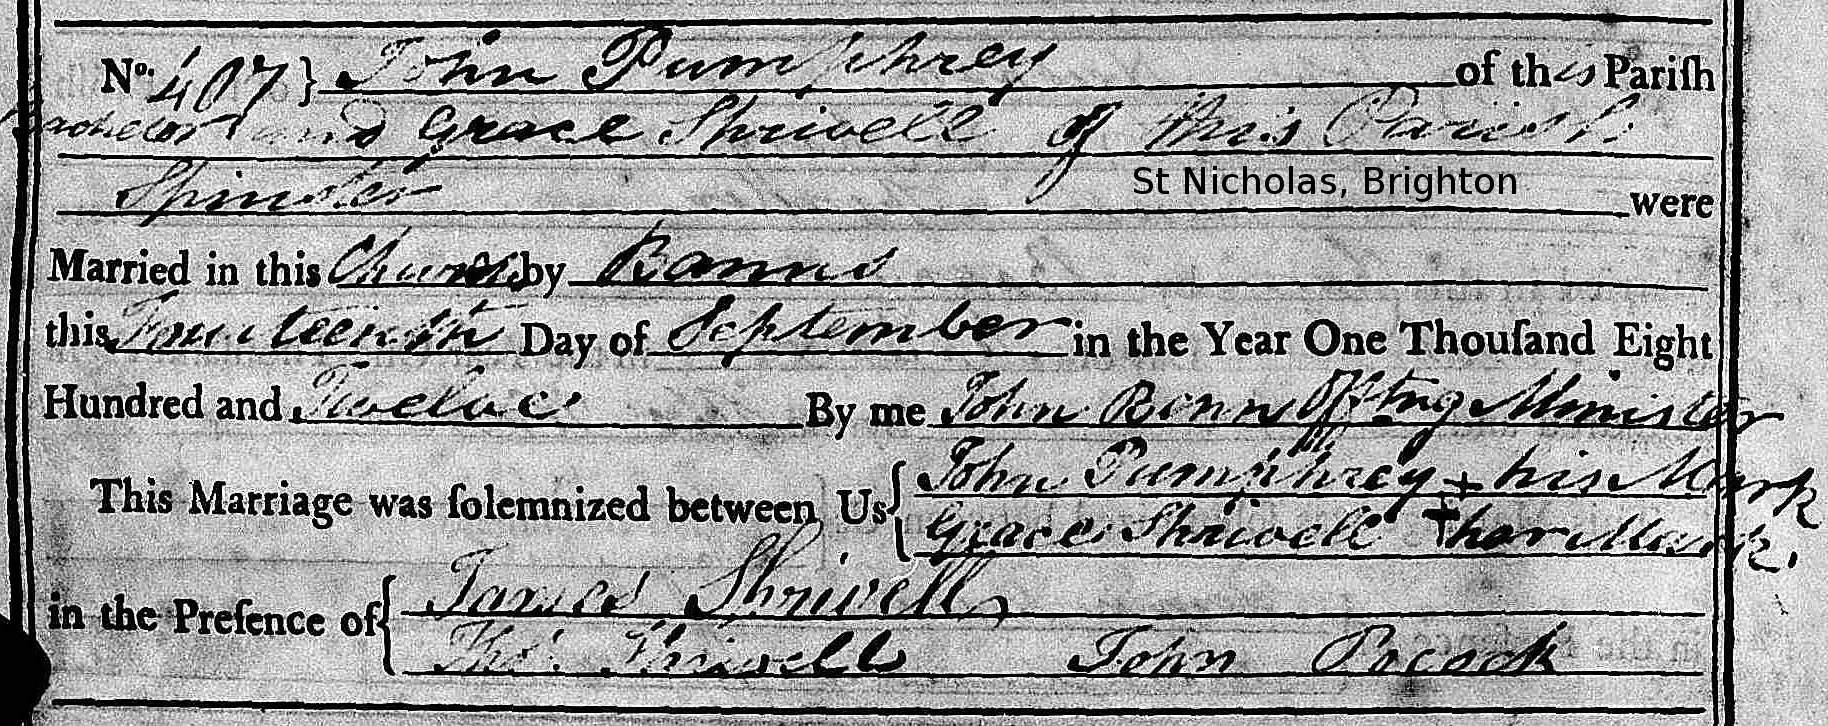 No. 407 } John Pumphrey of this Pariſh
Bachelor and Grace Shrivell of this Parish
Spinster
St Nicholas, Brighton
were
Married in this Church by Banns
this Fourteenth Day of September in the Year One Thouſand Eight
Hundred and Twelve By me John Bonn Offtng Minister
This Marriage was ſolemnized between Us { John Pumphrey + his Mark
Grace Shrivell + her Mark.
in the Preſence of { James Shrivell
Thos. Shrivell John Pocock